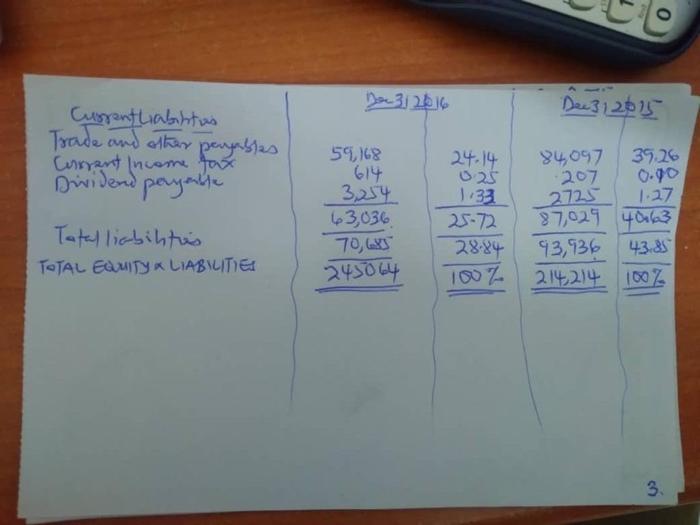 Dec 31 2016 Dec 31 2015
Current Liabilities
Trade and other payables 59,168 24.14 84,097 39.26
Current Income tax 614 0.25 207 0.10
Dividend payable 3,254 1.33 2725 1.27
63,036 25.72 87,029 40.63
Total liabilities 70,685 28.84 93,936 43.85
TOTAL EQUITY & LIABILITIES 245064 100% 214,214 100%
3.
0